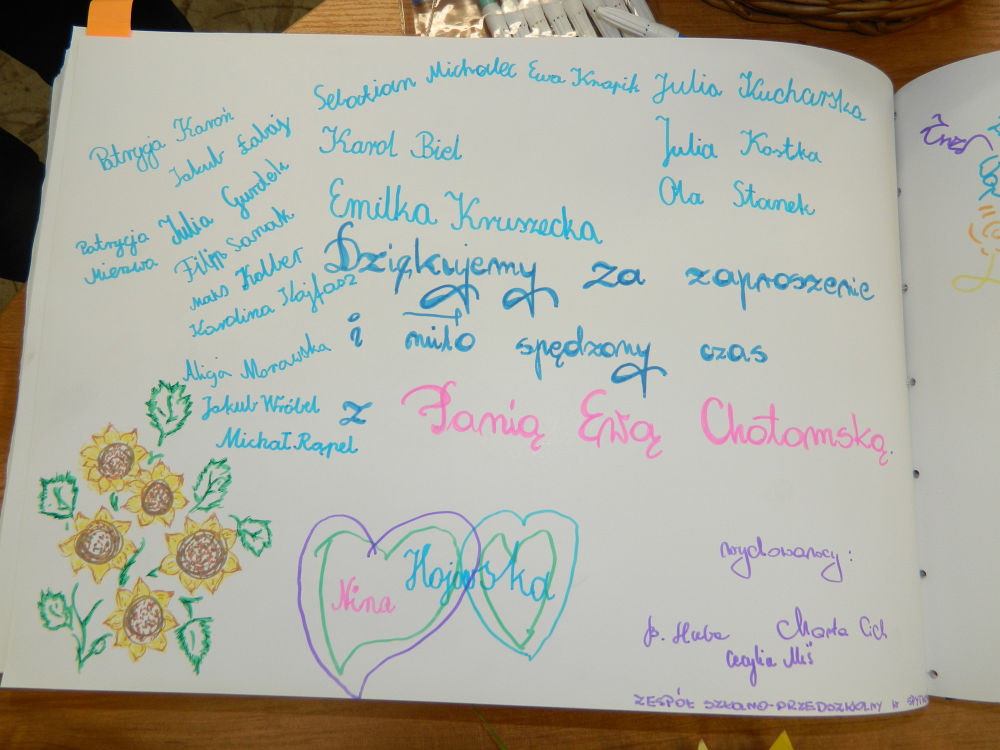 Sebastian Michalec Ewa Knapik Julia Kucharska
Patrycja Karoń
Jakub Łabaj
Karol Biel
Julia Kostka
Ola Stanek
Patrycja Mierzwa
Julia Gurdek
Emilka Kruszecka
Filip Sanak
Maks Kolber
Karolina Kajfasz
Dziękujemy za zaproszenie
i miło spędzony czas
Alicja Morawska
Jakub Wróbel
Michał Rapel
z Panią Ewą Chotomską.
Nina
wydowawcy:
Marta Cich
Cecylia Miś
ZESPÓŁ SZKOLNO-PRZEDSZKOLNY W